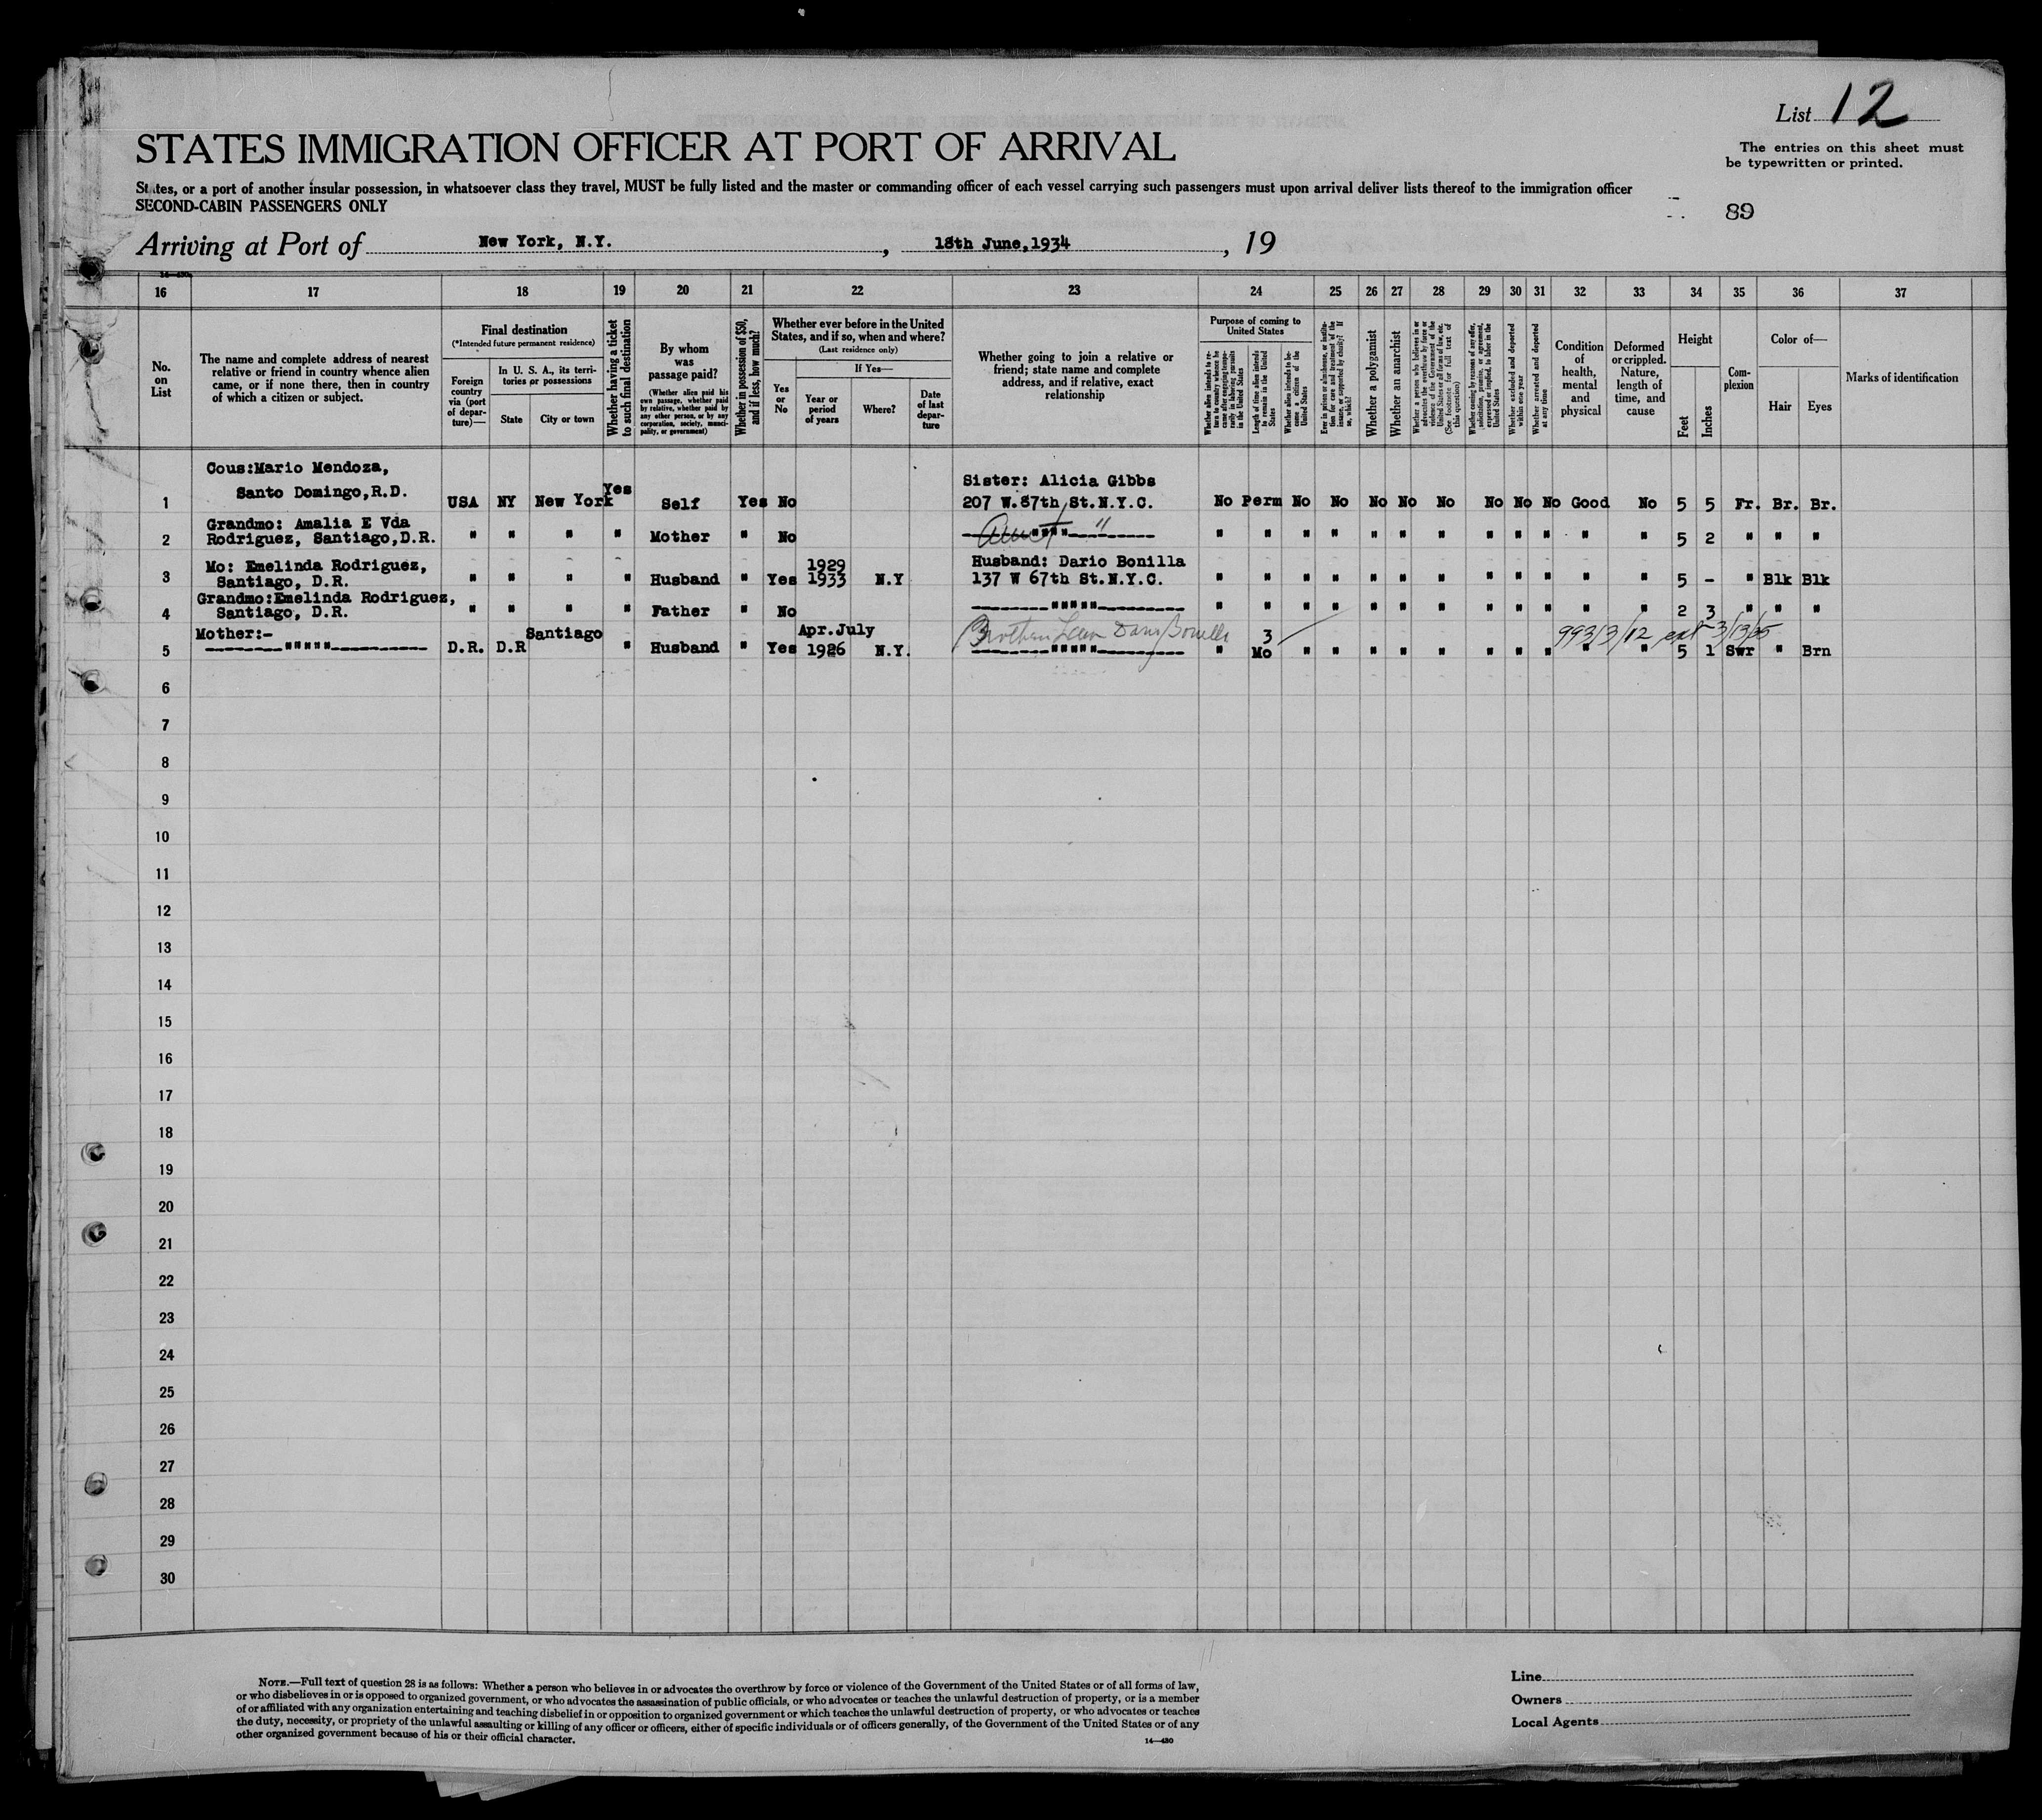 List 12
The entries on this sheet must
be typewritten or printed.
STATES IMMIGRATION OFFICER AT PORT OF ARRIVAL
States, or a port of another insular possession, in whatsoever class they travel, MUST be fully listed and the master or commanding officer of each vessel carrying such passengers must upon arrival deliver lists thereof to the immigration officer
SECOND-CABIN PASSENGERS ONLY
89
Arriving at Port of New York, N.Y., 18th June, 1934, 19
14—430
16 17 18 19 20 21 22 23 24 25 26 27 28 29 30 31 32 33 34 35 36 37
No.
on
List
The name and complete address of nearest
relative or friend in country whence alien
came, or if none there, then in country
of which a citizen or subject.
Final destination
(*Intended future permanent residence)
Foreign
country
via (port
of depar-
ture)—
In U. S. A., its terri-
tories or possessions
State
City or town
Whether having a ticket
to such final destination
By whom
was
passage paid?
(Whether alien paid his
own passage, whether paid
by relative, whether paid by
any other person, or by any
corporation, society, munici-
pality, or government)
Whether in possession of $50,
and if less, how much?
Whether ever before in the United
States, and if so, when and where?
(Last residence only)
Yes
or
No
If Yes—
Year or
period
of years
Where?
Date
of last
depar-
ture
Whether going to join a relative or
friend; state name and complete
address, and if relative, exact
relationship
Purpose of coming to
United States
Whether alien intends to re-
turn to country whence he
came after engaging tempo-
rarily in laboring pursuits
in the United States
Length of time alien intends
to remain in the United
States
Whether alien intends to be-
come a citizen of the
United States
Ever in prison or almshouse, or institu-
tion for care and treatment of the
insane, or supported by charity? If
so, which?
Whether a polygamist
Whether an anarchist
Whether a person who believes in or
advocates the overthrow by force or
violence of the Government of the
United States or all forms of law, etc.
(See footnote for full text of
this question)
Whether coming by reason of any offer,
solicitation, promise, or agreement,
expressed or implied, to labor in the
United States
Whether excluded and deported
within one year
Whether arrested and deported
at any time
Condition
of
health,
mental
and
physical
Deformed
or crippled.
Nature,
length of
time, and
cause
Height
Feet
Inches
Com-
plexion
Color of—
Hair
Eyes
Marks of identification
Cous:Mario Mendoza, Sister: Alicia Gibbs
1 Santo Domingo,R.D. USA NY New York Yes Self Yes No 207 W.87th St.N.Y.C. No Perm No No No No No No No No Good No 5 5 Fr. Br. Br.
Grandmo: Amalia E Vda
2 Rodriguez, Santiago,D.R. " " " " Mother " No Aunt " " " " " " " " " " " " " " 5 2 " " "
Mo: Emelinda Rodriguez, 1929 Husband: Dario Bonilla
3 Santiago, D.R. " " " " Husband " Yes 1933 N.Y 137 W 67th St.N.Y.C. " " " " " " " " " " " " 5 - " Blk Blk
Grandmo:Emelinda Rodriguez,
4 Santiago, D.R. " " " " Father " No """"" " " " " " " " " " " " " 2 3 " " "
Mother:- Santiago Apr.July Brother in Law Dario Bonilla 3 993/3/12 ext 3/13/35
5 """"" D.R. D.R " Husband " Yes 1926 N.Y. """"" " Mo " " " " " " " " " " 5 1 Swr " Brn
6
7
8
9
10
11
12
13
14
15
16
17
18
19
20
21
22
23
24
25
26
27
28
29
30
NOTE.—Full text of question 28 is as follows: Whether a person who believes in or advocates the overthrow by force or violence of the Government of the United States or of all forms of law,
or who disbelieves in or is opposed to organized government, or who advocates the assassination of public officials, or who advocates or teaches the unlawful destruction of property, or is a member
of or affiliated with any organization entertaining and teaching disbelief in or opposition to organized government or which teaches the unlawful destruction of property, or who advocates or teaches
the duty, necessity, or propriety of the unlawful assaulting or killing of any officer or officers, either of specific individuals or of officers generally, of the Government of the United States or of any
other organized government because of his or their official character.
14—430
Line
Owners
Local Agents